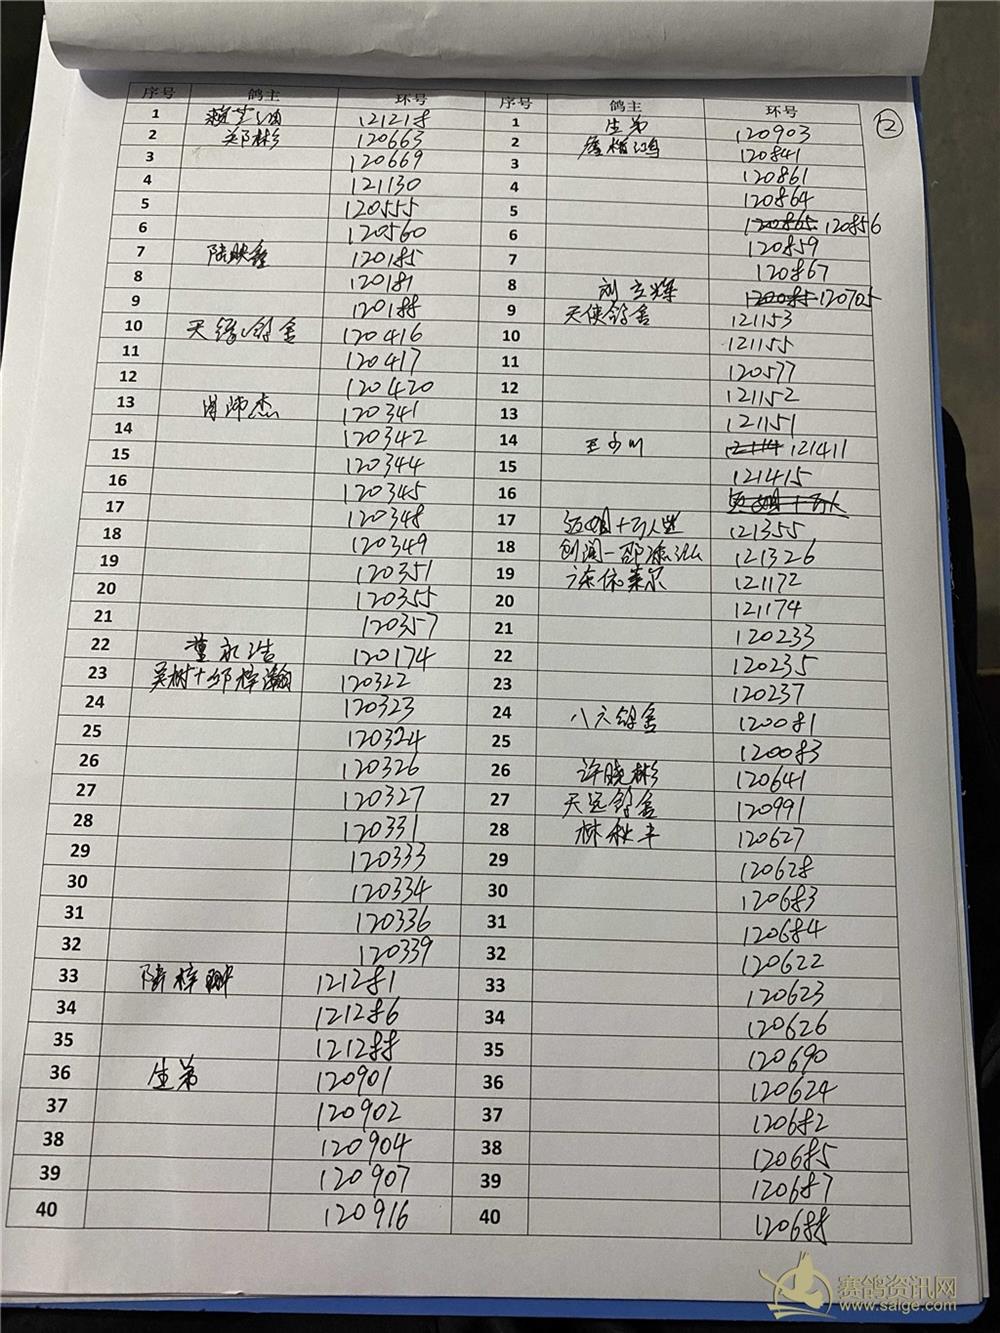 序号 鸽主 环号 序号 鸽主 环号
②
1 121218 1 生弟 120903
2 郑彬 120663 2 120841
3 120669 3 120861
4 121130 4 120864
5 120555 5 120865 120856
6 120560 6 120859
7 陆映鑫 120185 7 120867
8 120181 8 刘立辉 120085 120705
9 120188 9 天侠鸽舍 121153
10 天缘鸽舍 120416 10 121155
11 120417 11 120577
12 120420 12 121152
13 肖沛杰 120341 13 121151
14 120342 14 王少川 121411
15 120344 15 121415
16 120345 16
17 120348 17 121355
18 120349 18 121326
19 120351 19 121172
20 120355 20 121174
21 120357 21 120233
22 董永浩 120174 22 120235
23 吴树+邱梓瀚 120322 23 120237
24 120323 24 八六鸽舍 120081
25 120324 25 120083
26 120326 26 许晓彬 120641
27 120327 27 天远鸽舍 120991
28 120331 28 林秋丰 120627
29 120333 29 120628
30 120334 30 120683
31 120336 31 120684
32 120339 32 120622
33 121281 33 120623
34 121286 34 120626
35 121288 35 120690
36 生弟 120901 36 120624
37 120902 37 120682
38 120904 38 120685
39 120907 39 120687
40 120916 40 120688
赛鸽资讯网
www.saige.com